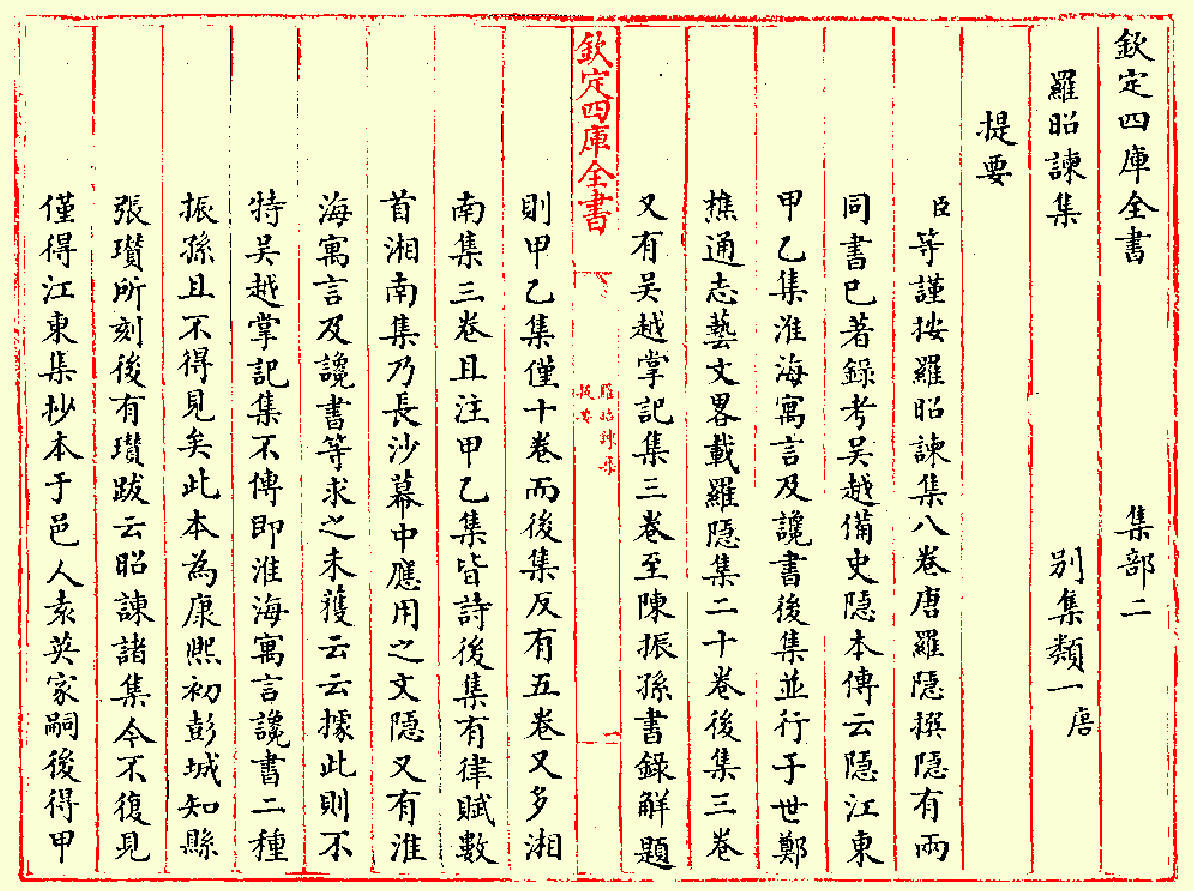 欽定四庫全書 集部二
羅昭諫集 別集類一 唐
提要
臣等謹按羅昭諫集八卷唐羅隠撰隠有兩
同書已著錄考吳越備史隠本傳云隠江東
甲乙集淮海寓言及讒書後集並行于世鄭
樵通志藝文畧載羅隠集二十卷後集三卷
又有吳越掌記集三卷至陳振孫書錄解題
欽定四庫全書
羅昭諫集
提要
則甲乙集僅十卷而後集反有五卷又多湘
南集三卷且注甲乙集皆詩後集有律賦數
首湘南集乃長沙幕中應用之文隠又有淮
海寓言及讒書等求之未獲云云據此則不
特吳越掌記集不傳即淮海寓言讒書二種
振孫且不得見矣此本為康熙初彭城知縣
張瓚所刻後有瓚跋云昭諫諸集今不復見
僅得江東集抄本于邑人袁英家嗣後得甲